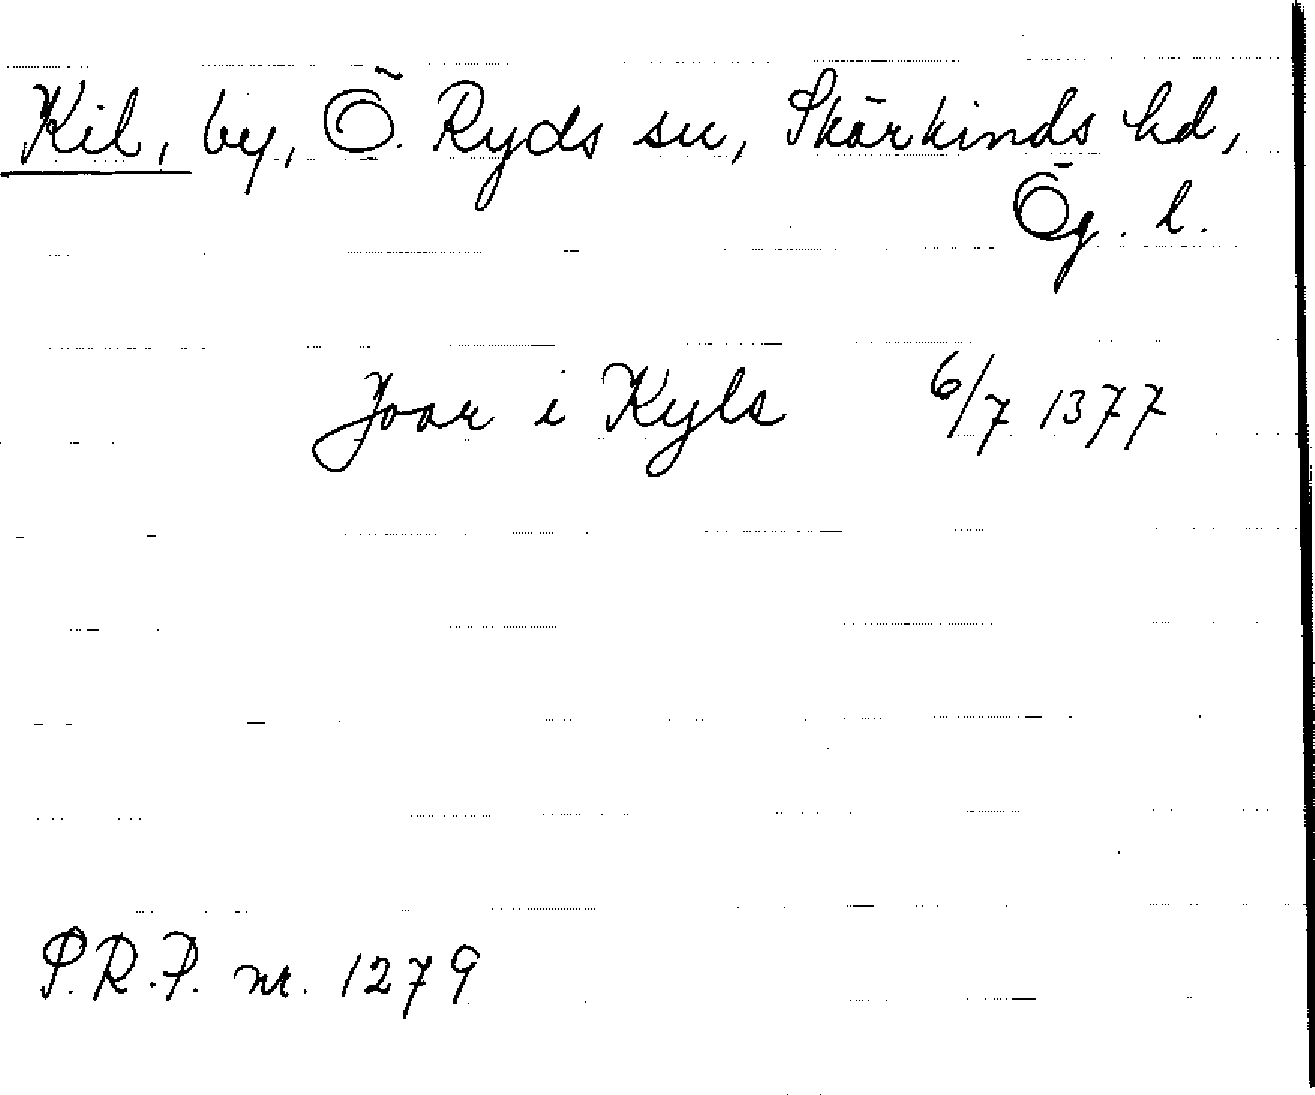 Kil, by, Ö. Ryds sn, Skärkinds hd,
Ög. l.
Joar i Kyls 6/7 1377
S.R.P. nr. 1279